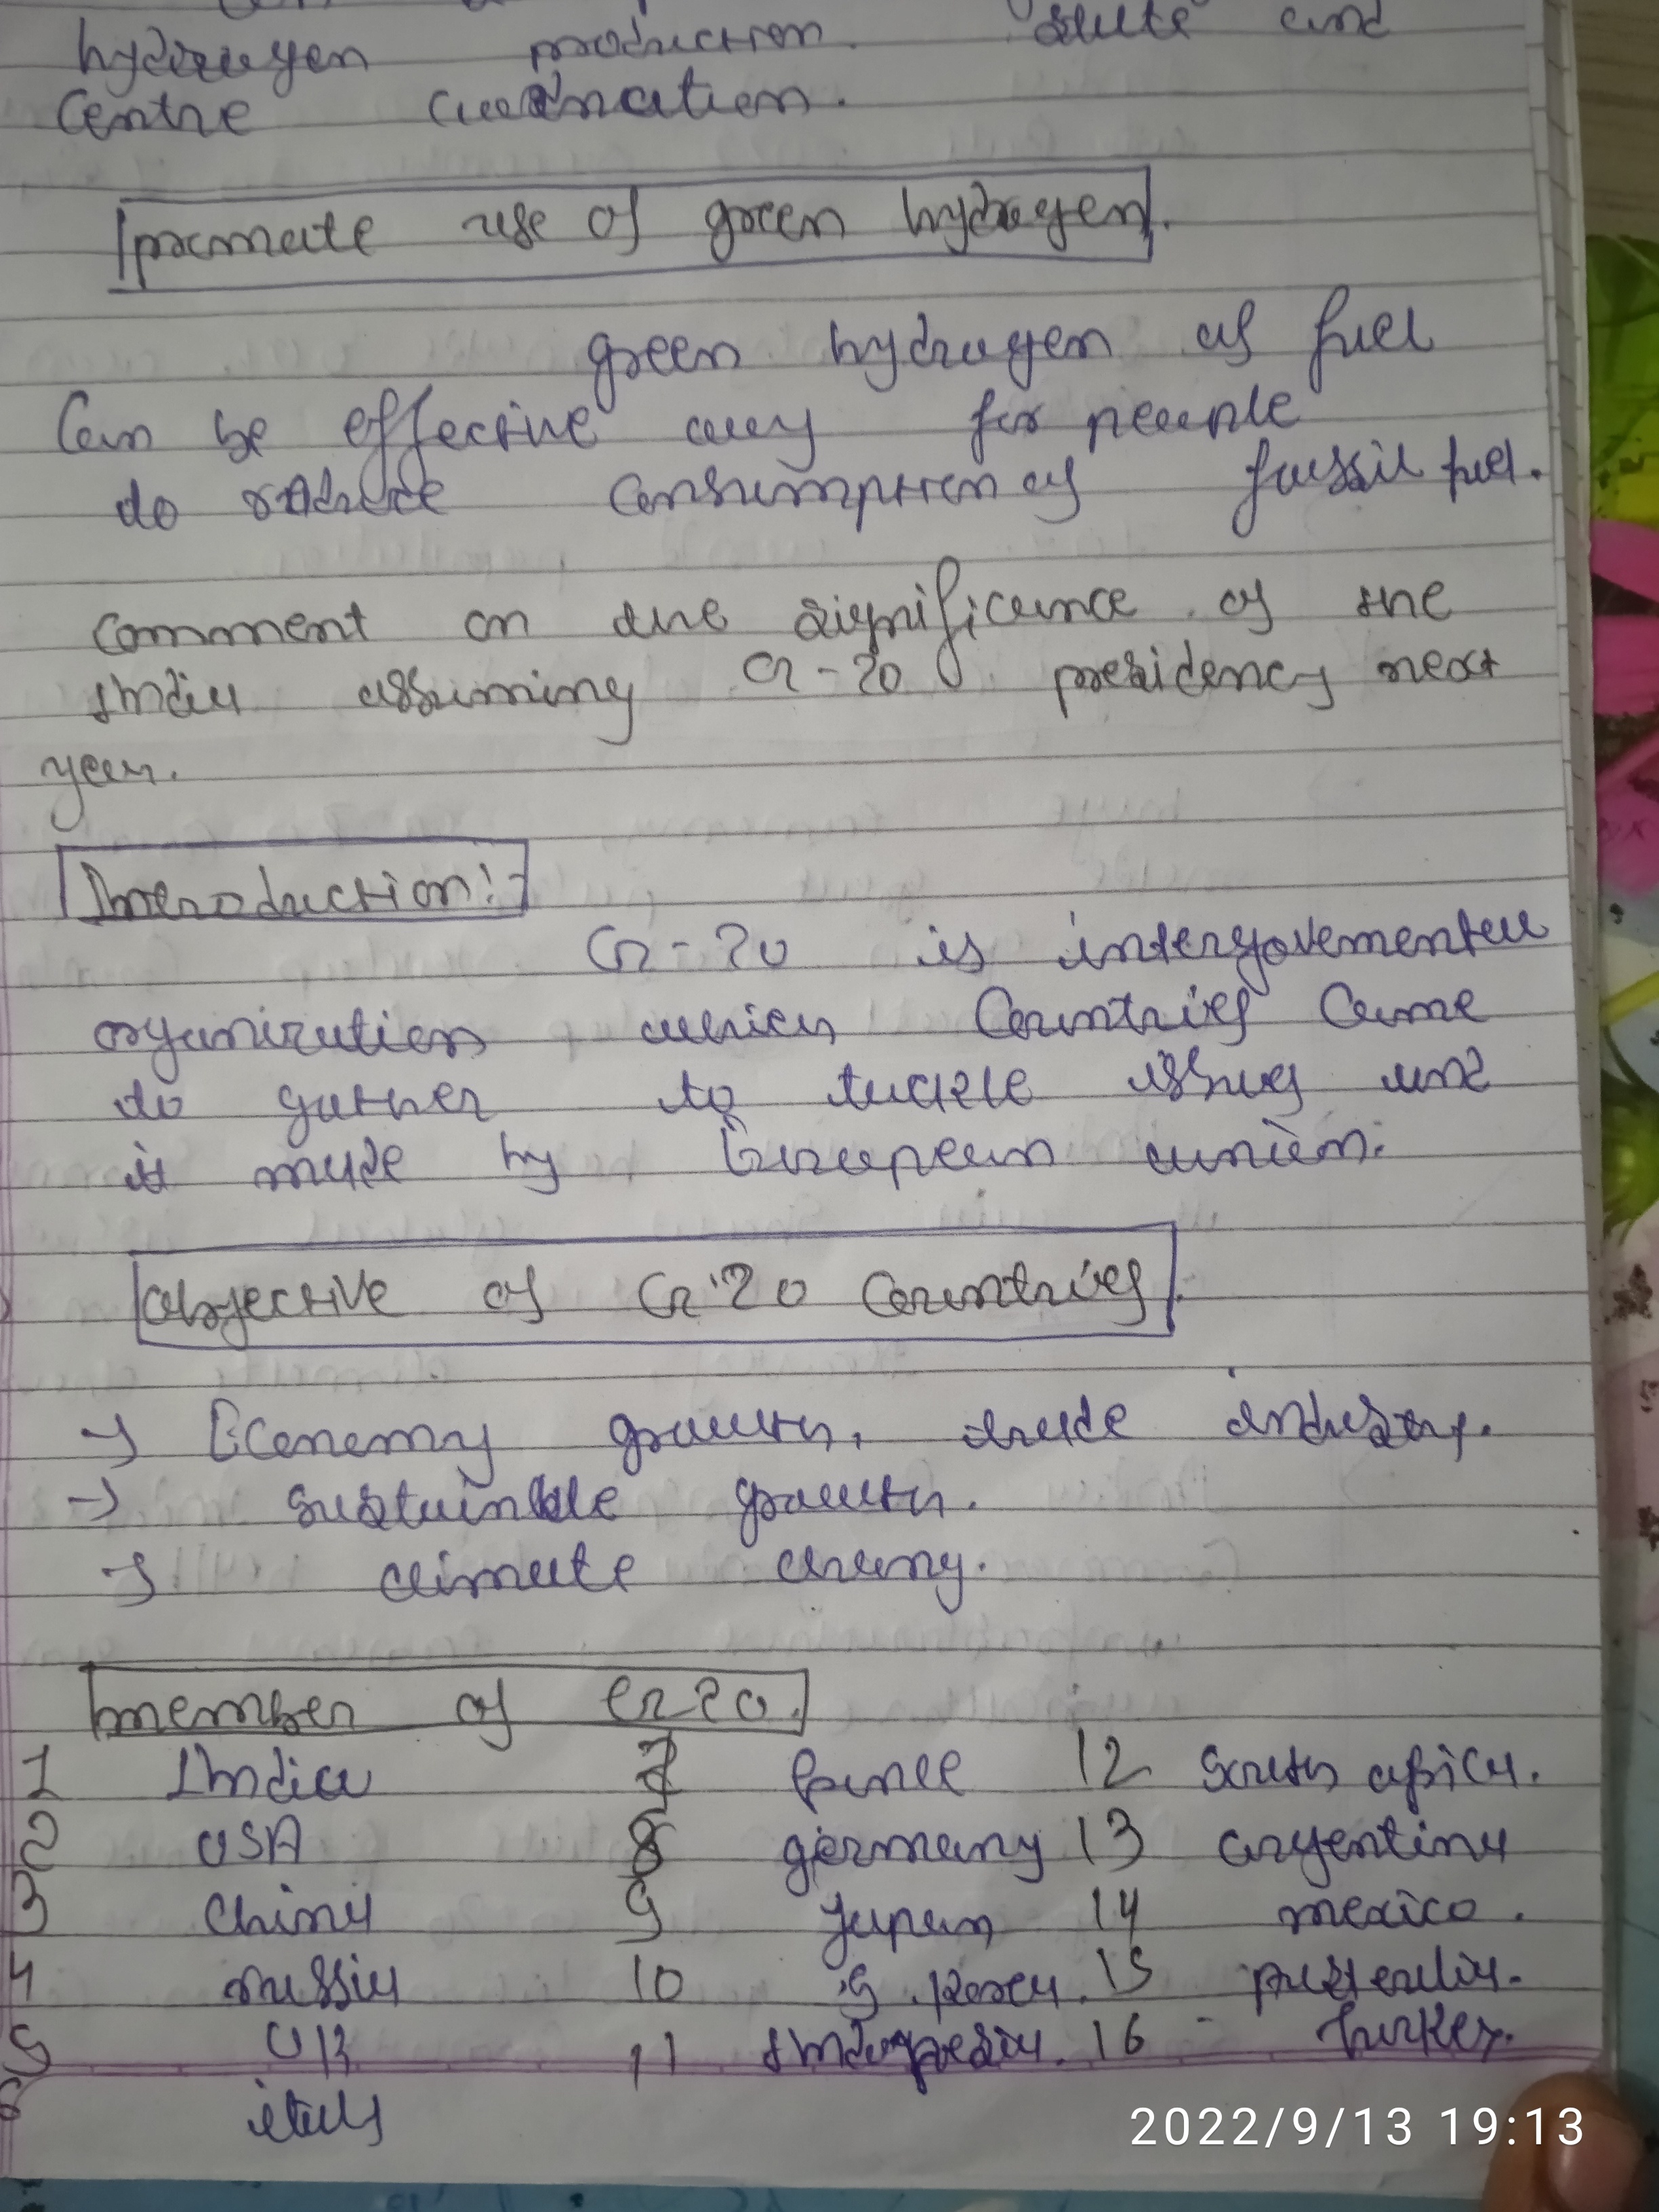 hydrogen production. state and
Centre
promote use of green hydrogen.
green hydrogen as fuel
Can be effective way for people
do reduce consumption of fossil fuel.
comment on the significance of the
India assuming G-20 presidency next
year.
Introduction:-
G-20 is intergovernmental
organization which Countries Came
do gather to tackle issues and
is made by European union.
objective of G'20 Countries.
→ Economy growth, trade industry.
→ sustainble growth.
→ climate chang.
member of G20.
1 India 7 france 12 South africa.
2 USA 8 germany 13 argentina
3 China 9 Japan 14 mexico.
4 russia 10 S. Korea. 15 Australia.
5 UK 11 Indonesia. 16 - Turkey.
6 italy
2022/9/13 19:13